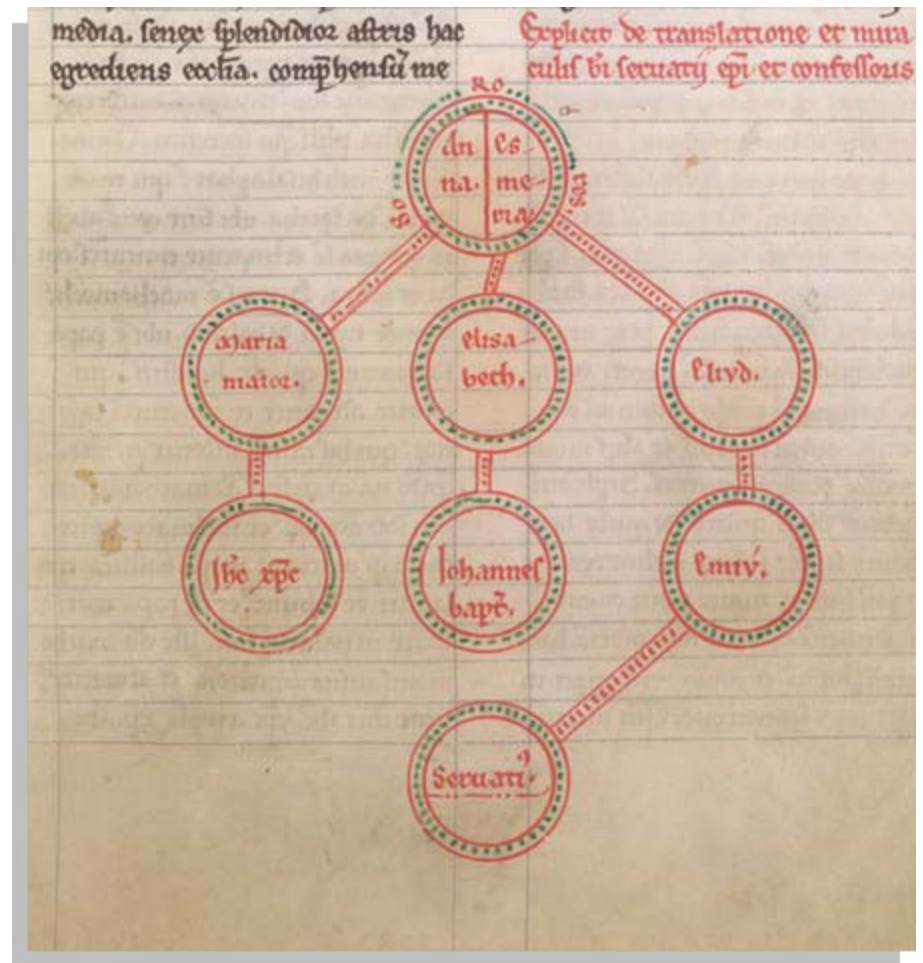 media. senex splendidior astris hac
egrediens eccl̄ia. comp̄hensū me
Explicit de translatione et mira
culis bi seruatij ep̄i et confessoris
so ro res.
An na.
es- me- ria
Maria
maior.
elisa
beth.
Eliud.
Ih̄c xp̄c
Johannes
bapt̄.
Emiu'.
Seruatiꝰ